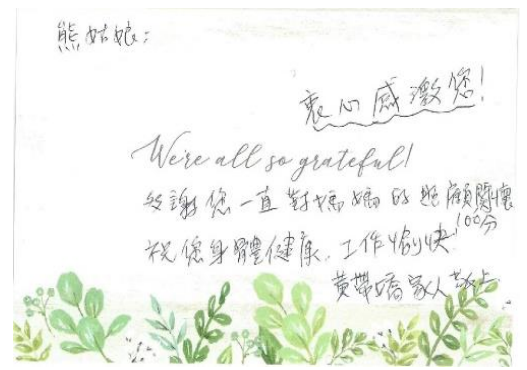 熊姑娘:
衷心感激您!
We're all so grateful!
多謝您一直對媽媽的照顧關懷
100分
祝您身體健康、工作愉快!
黃帶嬌家人敬上